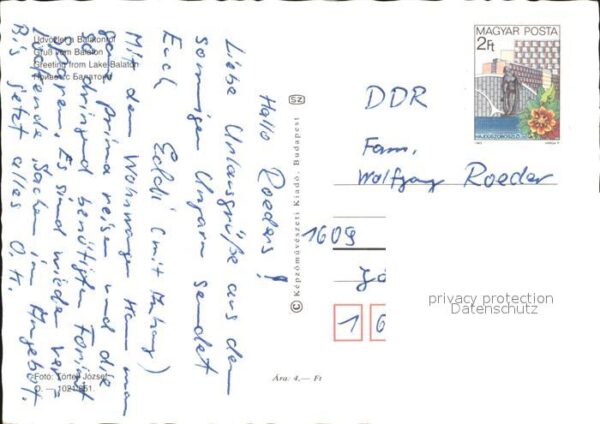 Üdvözlet a Balatonról
Gruß vom Balaton
Greeting from Lake Balaton
Привет с Балатона
Hallo Roeders!
Liebe Urlausgrüße aus dem
sonnigen Ungarn sendet
Euch Eddi (mit Anhang)
Mit dem Wohnwagen kann man
ganz prima reisen und die
dringend benötigten Forint
sparen. Es sind wieder ver-
lockende Sachen im Angebot.
Bis jetzt alles O.K.
Foto: Törtei József
© Képzőművészeti Kiadó, Budapest
SZ
Ára: 4.— Ft
MAGYAR POSTA
2Ft
HAJDÚSZOBOSZLÓ
DDR
Fam.
Wolfgang Roeder
1609
16
privacy protection
Datenschutz